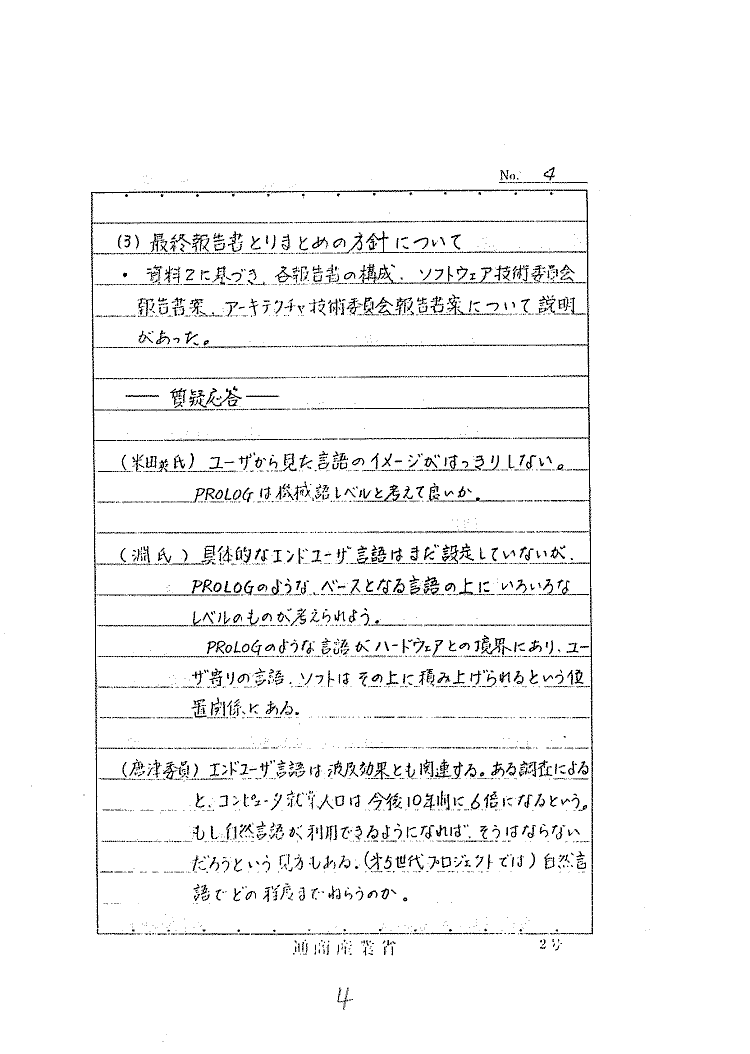 No. 4
(3) 最終報告書とりまとめの方針について
・ 資料2に基づき、各報告書の構成、ソフトウェア技術委員会
報告書案、アーキテクチャ技術委員会報告書案について説明
があった。
—— 質疑応答 ——
(米田英氏) ユーザから見た言語のイメージがはっきりしない。
PROLOGは機械語レベルと考えて良いか。
(淵氏) 具体的なエンドユーザ言語はまだ設定していないが、
PROLOGのような、ベースとなる言語の上にいろいろな
レベルのものが考えられよう。
PROLOGのような言語がハードウェアとの境界にあり、ユー
ザ寄りの言語、ソフトはその上に積み上げられるという位
置関係にある。
(唐津委員) エンドユーザ言語は波及効果とも関連する。ある調査による
と、コンピュータ就労人口は今後10年間に6倍になるという。
もし自然言語が利用できるようになれば、そうはならない
だろうという見方もある。(第5世代プロジェクトでは)自然言
語でどの程度までねらうのか。
通商産業省
2号
4